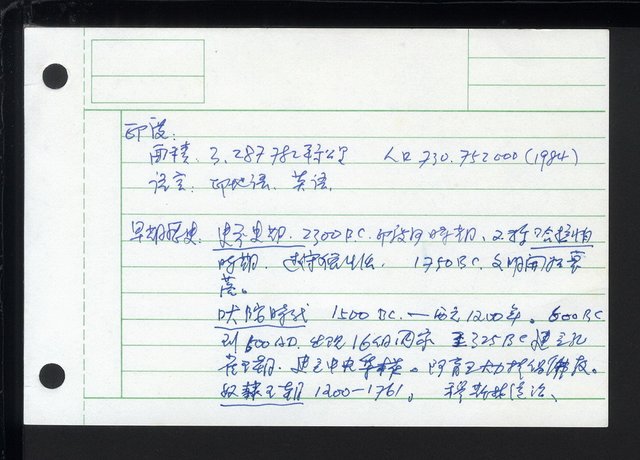 印度:
面積. 3.287782平方公里 人口 730.752000 (1984)
语言: 印地语. 英语.
早期歷史: 史前史期. 2300 B.C. 印度河時期, 又称哈拉帕
時期. 1750 B.C. 文明開始衰
落。
吠陀時代 1500 B.C. — 西元1200年。 600 BC
到 600 AD. 出现 16個国家 至325 BC 建立孔
雀王朝. 建立中央集权。 阿育王大力提倡佛教。
奴隸王朝 1200—1761。 穆斯林統治、